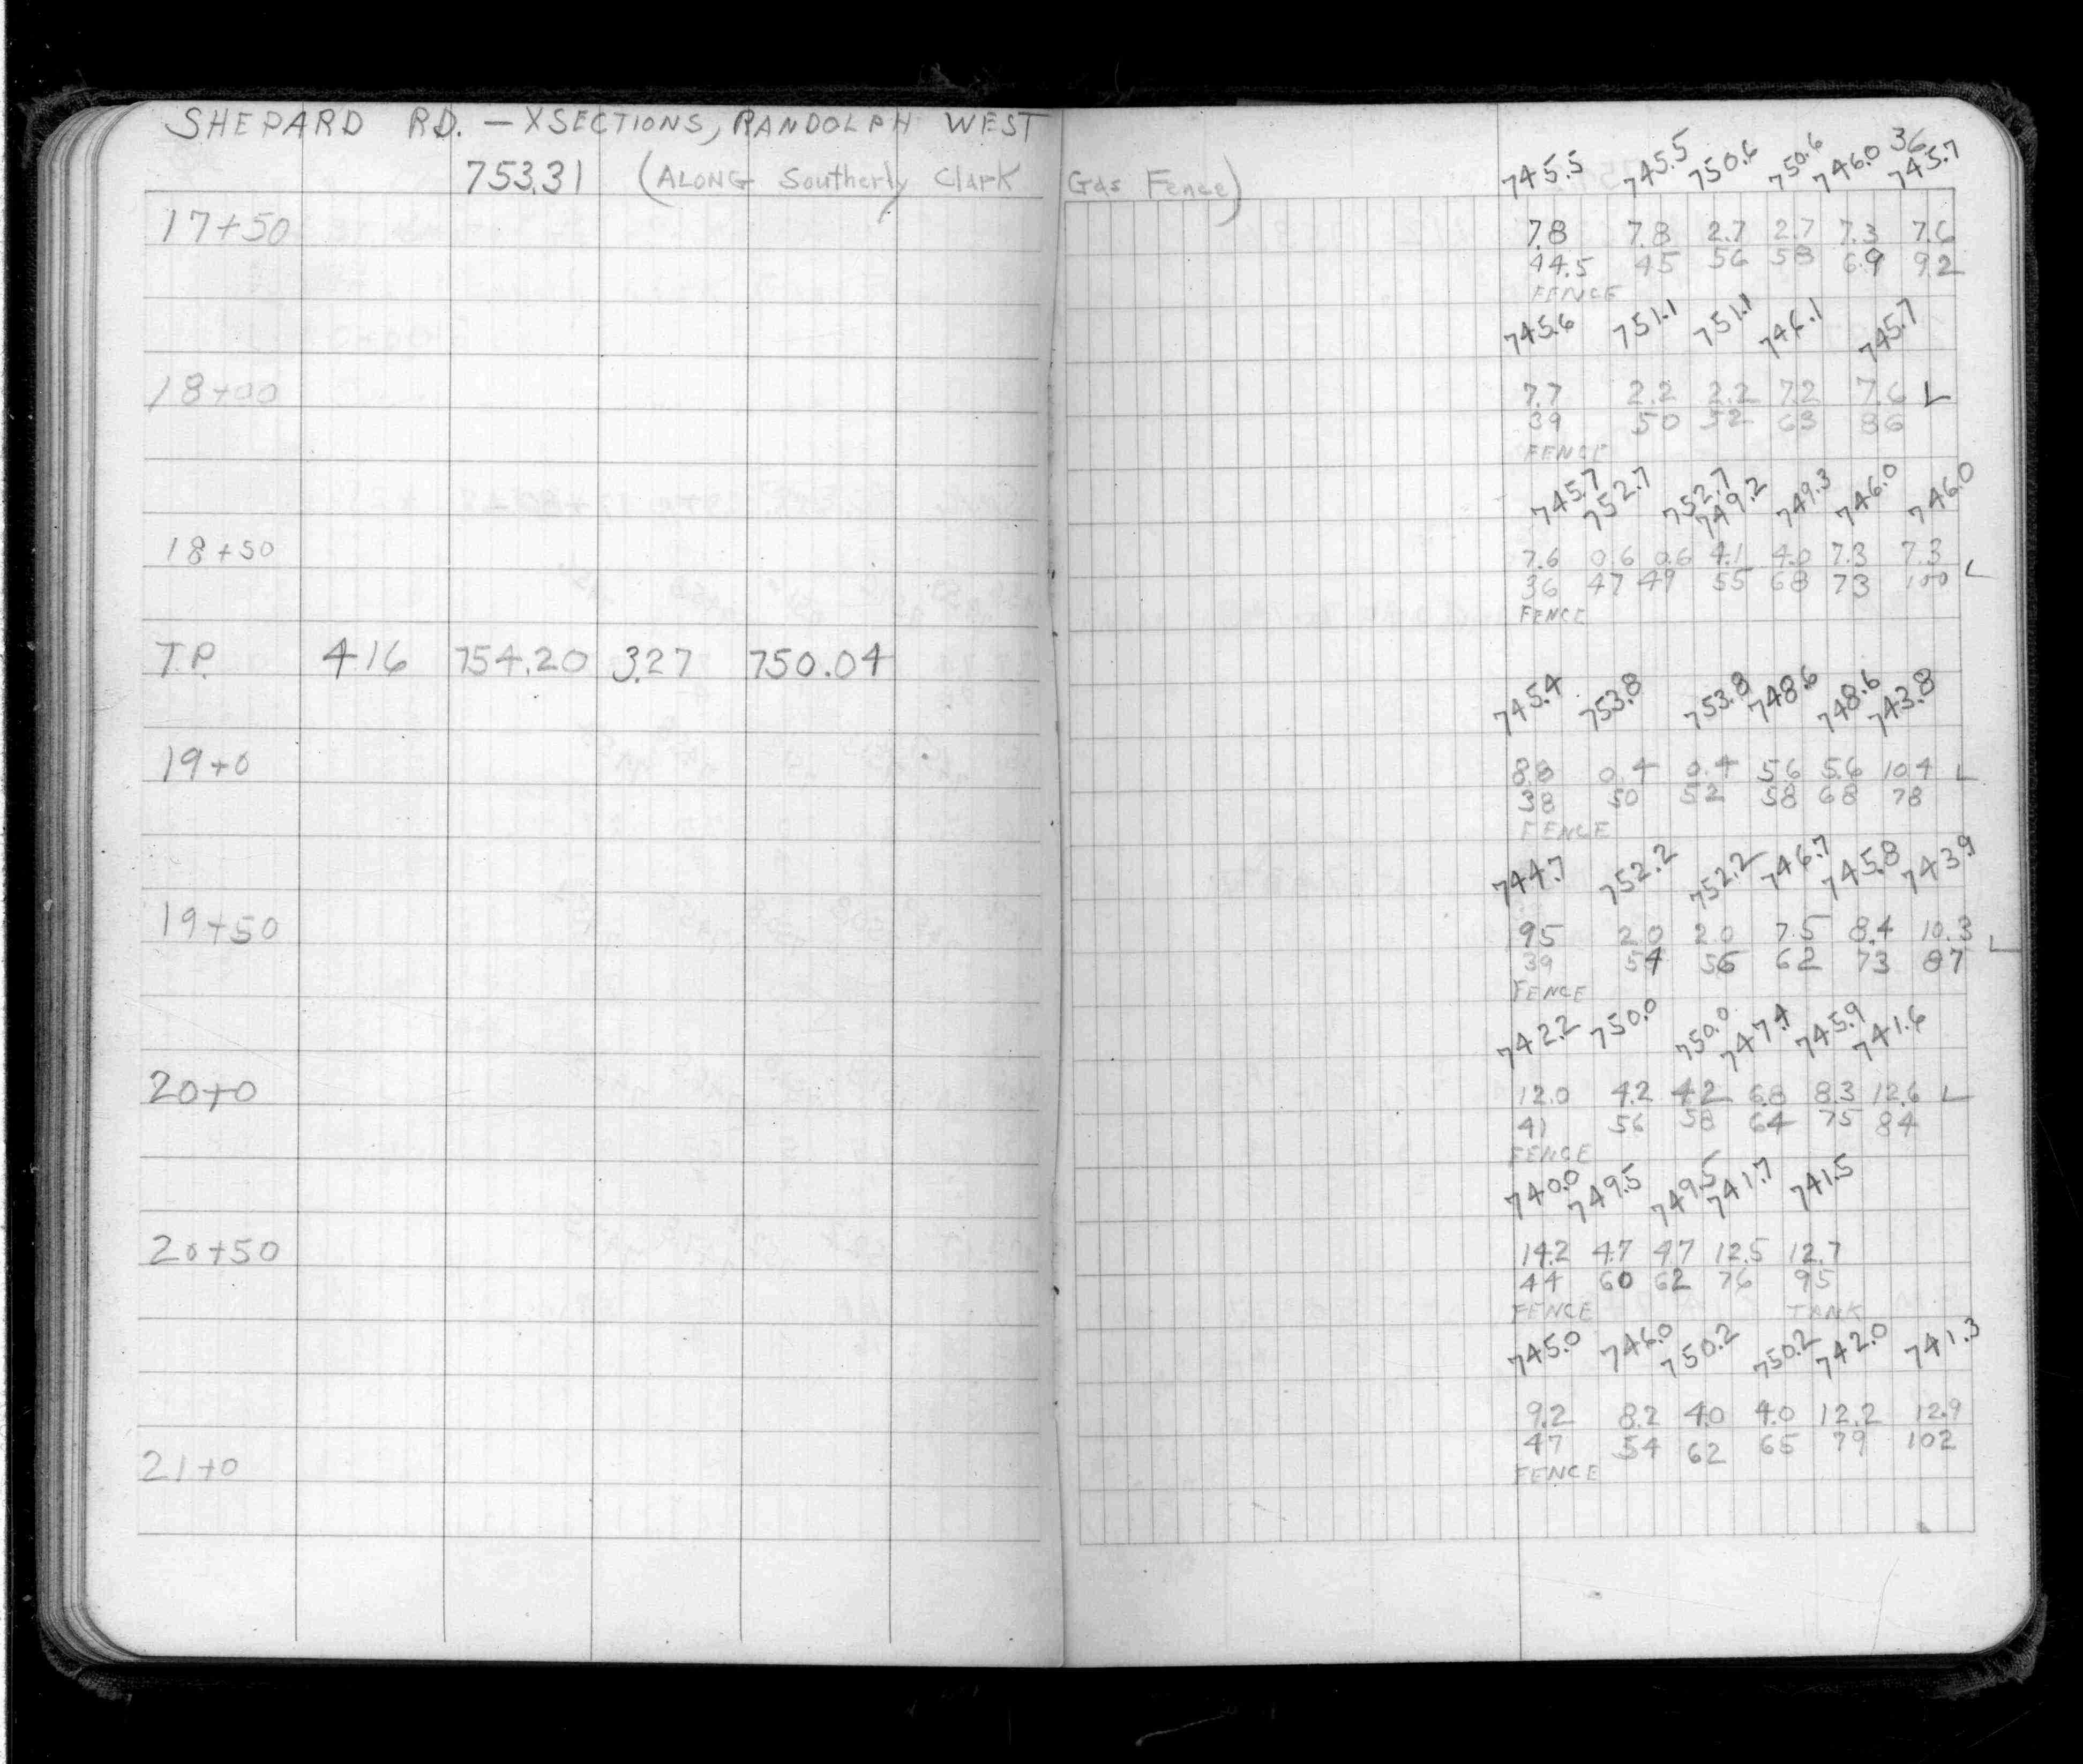 SHEPARD RD. — XSECTIONS, RANDOLPH WEST
36
753.31 (ALONG Southerly Clark Gas Fence)
745.5 745.5 750.6 750.6 746.0 745.7
17+50 7.8 7.8 2.7 2.7 7.3 7.6
44.5 45 56 58 69 92
FENCE
745.6 751.1 751.1 746.1 745.7
18+00 7.7 2.2 2.2 7.2 7.6 L
39 50 52 63 86
FENCE
745.7 752.7 752.7 749.2 749.3 746.0 746.0
18+50 7.6 0.6 0.6 4.1 4.0 7.3 7.3
36 47 49 55 68 73 100 L
FENCE
T.P. 4.16 754.20 3.27 750.04
745.4 753.8 753.8 748.6 748.6 743.8
19+0 8.8 0.4 0.4 5.6 5.6 10.4 L
38 50 52 58 68 78
FENCE
744.7 752.2 752.2 746.7 745.8 743.9
19+50 9.5 2.0 2.0 7.5 8.4 10.3 L
39 54 56 62 73 87
FENCE
742.2 750.0 750.0 747.4 745.9 741.6
20+0 12.0 4.2 4.2 6.8 8.3 12.6 L
41 56 58 64 75 84
FENCE
740.0 749.5 749.5 741.7 741.5
20+50 14.2 4.7 4.7 12.5 12.7
44 60 62 76 95
FENCE TANK
745.0 746.0 750.2 750.2 742.0 741.3
9.2 8.2 4.0 4.0 12.2 12.9
47 54 62 65 79 102
21+0 FENCE